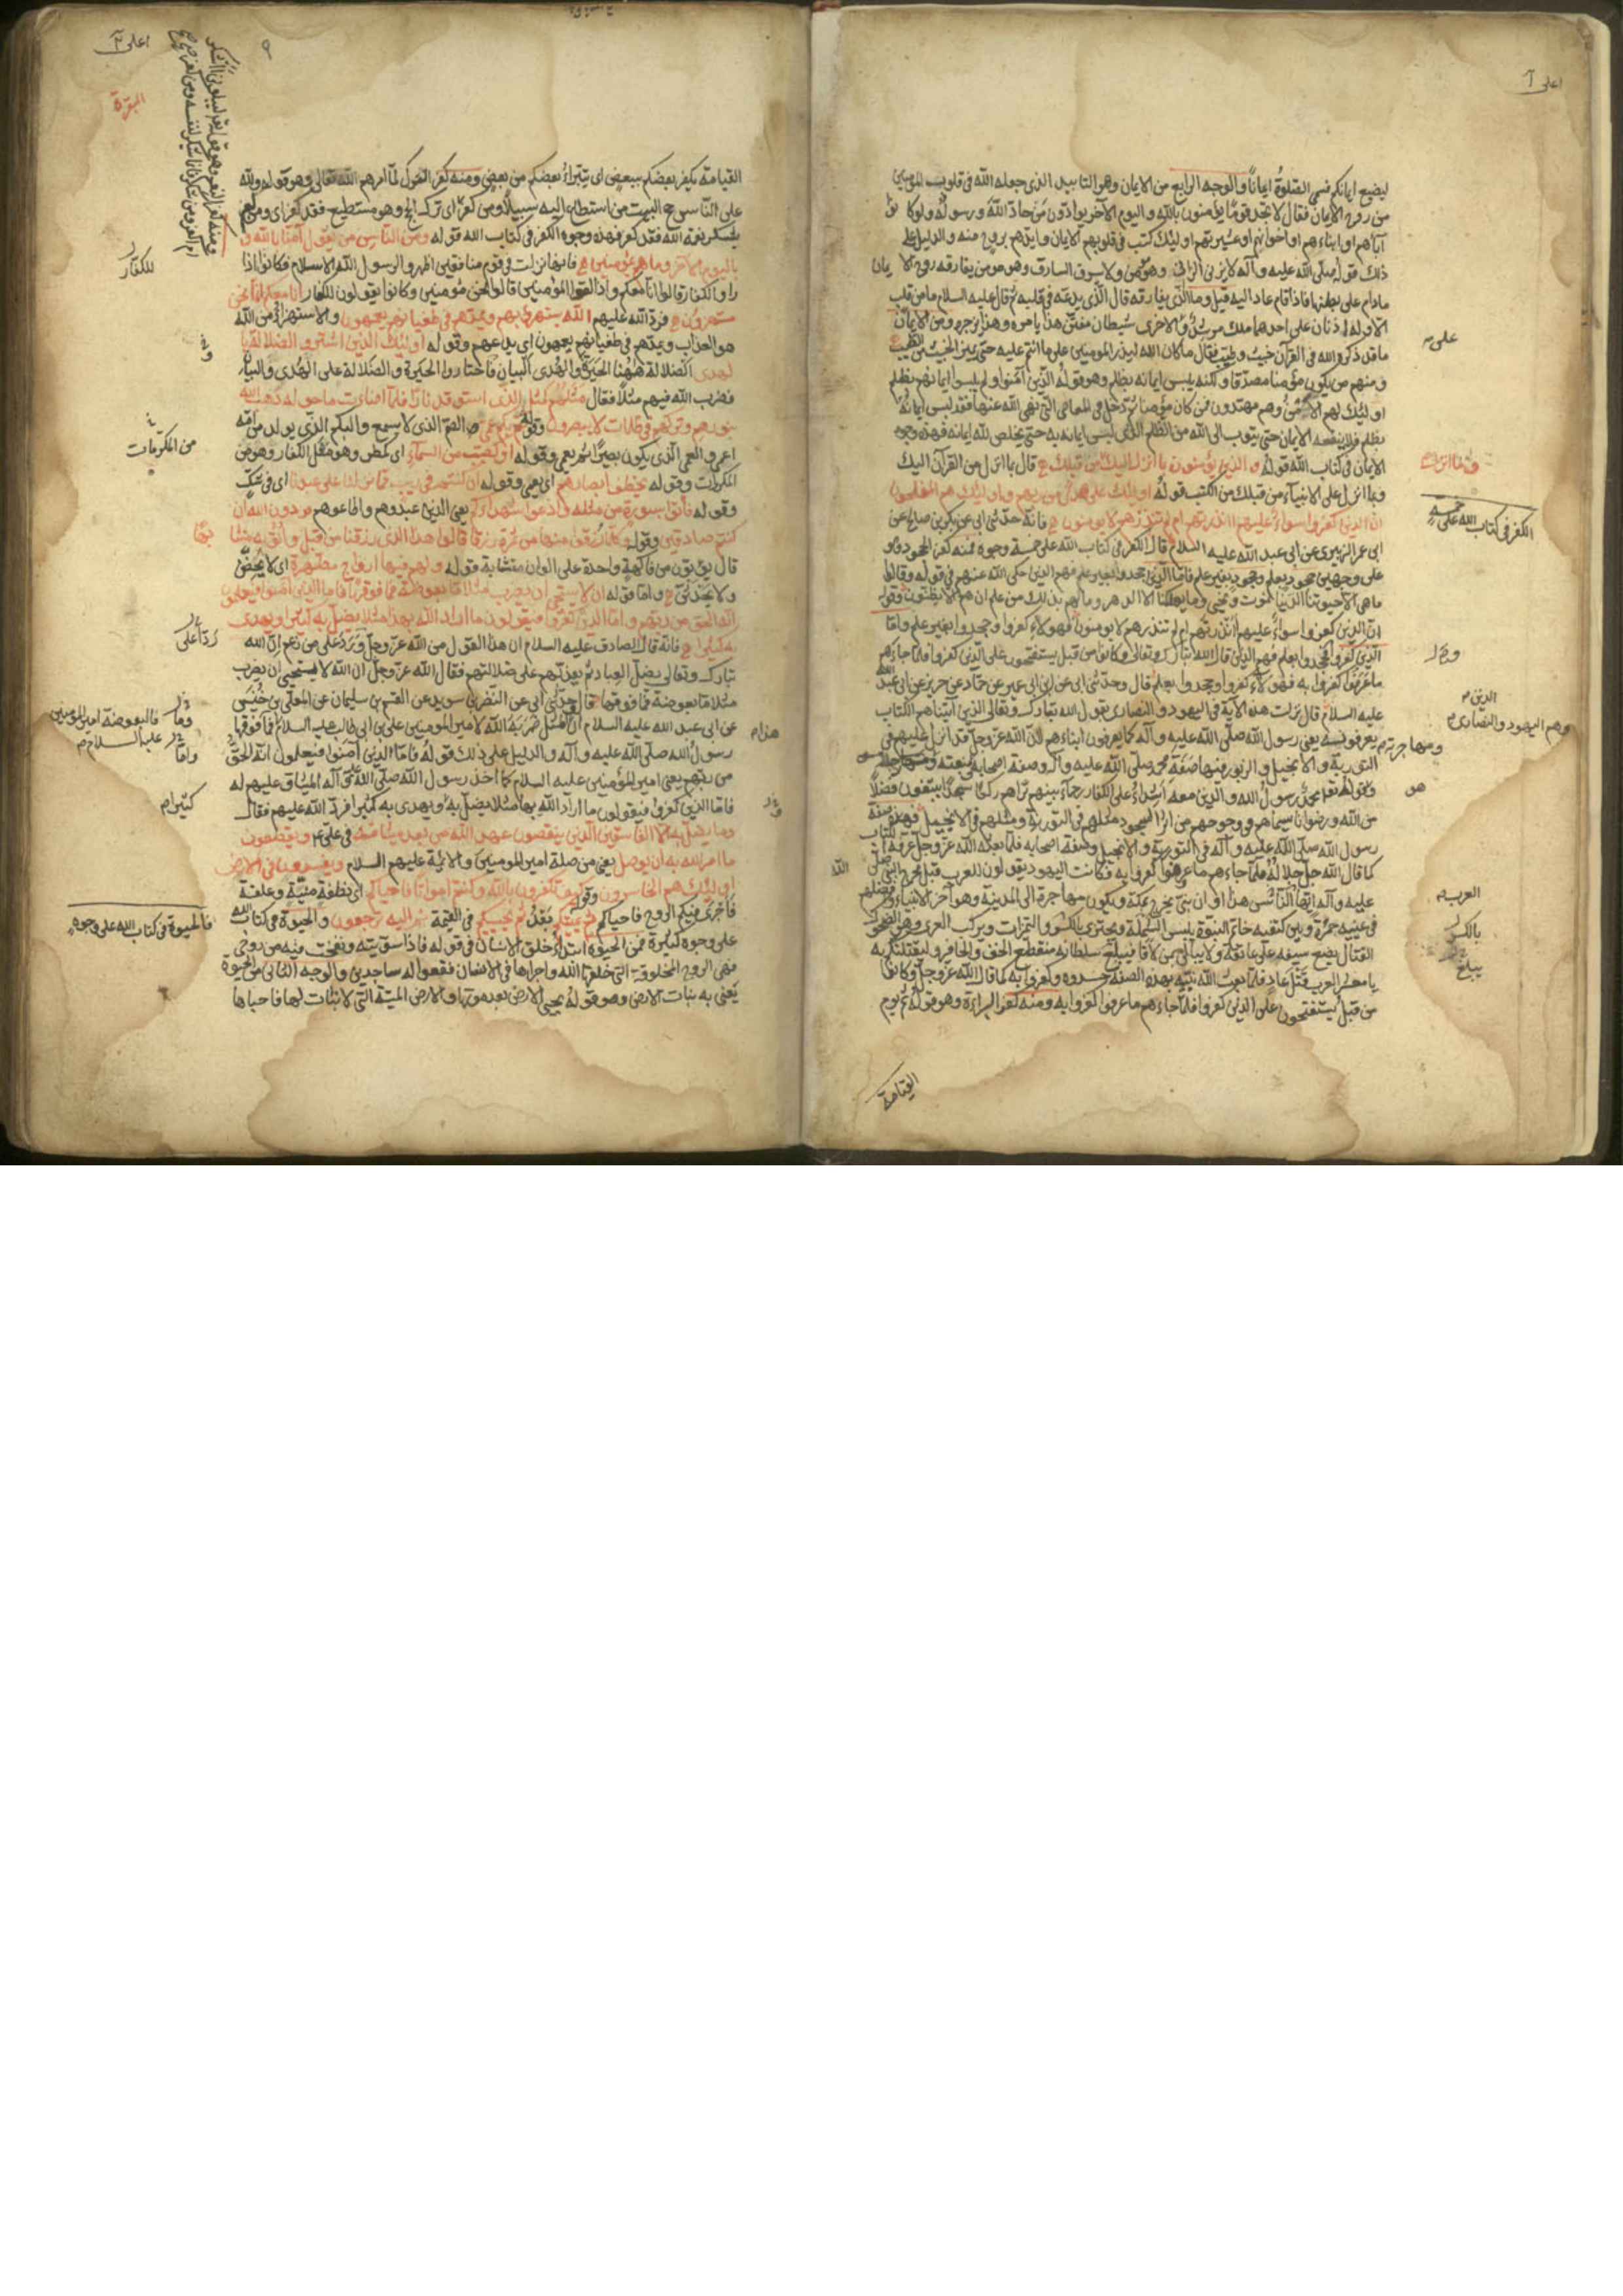 ليضيع ايمانكم فسمى الصلوة ايمانا والوجه الرابع من الايمان وهو التاييد الذي جعله الله في قلوب المومنين
من روح الايمان فقال لا تجد قوما يؤمنون بالله واليوم الآخر يوادون من حاد الله ورسوله ولو كانوا
آباءهم او ابناءهم او اخوانهم او عشيرتهم اولئك كتب في قلوبهم الايمان وايدهم بروح منه والدليل على
ذلك قوله صلى الله عليه وآله لا يزني الزاني وهو مؤمن ولا يسرق السارق وهو مومن يفارقه روح الايمان
مادام على بطنها فاذا قام عاد اليه قيل وما الذي يفارقه قال الذي يدعه في قلبه ثم قال عليه السلام ما من قلب
الا وله اذنان على احدهما ملك مرشد وعلى الاخرى شيطان مفتن هذا يامره وهذا يزجره ومن الايمان
ما قد ذكره الله في القرآن خبيث وطيب فقال ما كان الله ليذر المومنين على ما انتم عليه حتى يميز الخبيث من الطيب
ومنهم من يكون مؤمنا مصدقا ولكنه يلبس ايمانه بظلم وهو قوله الذين آمنوا ولم يلبسوا ايمانهم بظلم
اولئك لهم الامن وهم مهتدون فمن كان مؤمنا ثم دخل في المعاصي التي نهى الله عنها فقد لبس ايمانه
بظلم فلا ينفعه الايمان حتى يتوب الى الله من الظلم الذي لبس ايمانه به حتى يخلص لله ايمانه فهذه وجوه
الايمان في كتاب الله قوله والذين يؤمنون بما انزل اليك وما انزل من قبلك قال بما انزل من القرآن اليك
وبما انزل على الانبياء من قبلك من الكتب قوله اولئك على هدى من ربهم واولئك هم المفلحون
ان الذين كفروا سواء عليهم ءانذرتهم ام لم تنذرهم لا يومنون فانه حدثني ابي عن بكر بن صالح عن
ابي عمر الزبيري عن ابي عبد الله عليه السلام قال الكفر في كتاب الله على خمسة وجوه فمنه كفر الجحود وهو
على وجهين جحود بعلم وجحود بغير علم فاما الذين جحدوا بغير علم فهم الذين حكى الله عنهم في قوله وقالوا
ما هي الا حيوتنا الدنيا نموت ونحيى وما يهلكنا الا الدهر وما لهم بذلك من علم ان هم الا يظنون وقوله
ان الذين كفروا سواء عليهم ءانذرتهم ام لم تنذرهم لا يومنون فهولاء كفروا وجحدوا بغير علم واما
الذين كفروا وجحدوا بعلم فهم الذين قال الله تبارك وتعالى وكانوا من قبل يستفتحون على الذين كفروا فلما جاءهم
ما عرفوا كفروا به فهولاء كفروا وجحدوا بعلم قال وحدثني ابي عن ابن ابي عمير عن حماد عن حريز عن ابي عبد الله
عليه السلام قال نزلت هذه الآية في اليهود والنصارى يقول الله تبارك وتعالى الذين آتيناهم الكتاب
يعرفونه يعني رسول الله صلى الله عليه وآله كما يعرفون ابناءهم لان الله عز وجل قد انزل عليهم في
التورية والانجيل والزبور صفة محمد صلى الله عليه وآله وصفة اصحابه
وهو قوله تعالى محمد رسول الله والذين معه اشداء على الكفار رحماء بينهم تراهم ركعا سجدا يبتغون فضلا
من الله ورضوانا سيماهم في وجوههم من اثر السجود مثلهم في التورية ومثلهم في الانجيل فهذه صفة
رسول الله صلى الله عليه وآله في التورية والانجيل وصفة اصحابه فلما بعثه الله عز وجل عرفه اهل الكتاب
كما قال الله جل جلاله فلما جاءهم ما عرفوا كفروا به فكانت اليهود يقولون للعرب قبل مجيء النبي صلى الله
عليه وآله ايها الناس هذا اوان نبي يخرج بمكة ويكون مهاجرته الى المدينة وهو آخر الانبياء وافضلهم
في عينيه حمرة وبين كتفيه خاتم النبوة يلبس الشملة ويجتزي بالكسر والتمرات ويركب الحمار العري وهو الضحوك
القتال يضع سيفه على عاتقه ولا يبالي بمن لاقا فيبلغ سلطانه منقطع الخف والحافر وليقتلنكم به
يا معشر العرب قتل عاد فلما بعث الله نبيه بهذه الصفة حسدوه وكفروا به كما قال الله عز وجل وكانوا
من قبل يستفتحون على الذين كفروا فلما جاءهم ما عرفوا كفروا به ومنه كفر البراءة وهو قوله ثم يوم
القيامة
الكفر في كتاب الله على خمسة
الذين
وهم اليهود والنصارى
ومهاجرته
هو
العرب
بالكسر
يبلغ
البقرة
القيامة يكفر بعضكم ببعض اى يتبرأ بعضكم من بعض ومنه كفر الترك لما امرهم الله تعالى وهو قوله ولله
على الناس حج البيت من استطاع اليه سبيلا ومن كفر اى ترك الحج وهو مستطيع فقد كفر اى ومن لم
يشكر نعمة الله فقد كفر فهذه وجوه الكفر في كتاب الله قوله ومن الناس من يقول آمنا بالله و
باليوم الآخر وما هم بمؤمنين فانها نزلت في قوم منافقين اظهروا لرسول الله الاسلام فكانوا اذا
راوا الكفار قالوا انا معكم واذا لقوا المؤمنين قالوا نحن مؤمنين وكانوا يقولون للكفار انا معكم انما نحن
مستهزؤن فرد الله عليهم الله يستهزئ بهم ويمدهم في طغيانهم يعمهون والاستهزاء من الله
هو العذاب ويمدهم في طغيانهم يعمهون اى يدعهم وقوله اولئك الذين اشتروا الضلالة با
لهدى الضلالة ههنا الحيرة والهدى البيان فاختاروا الحيرة والضلالة على الهدى والبيان
فضرب الله فيهم مثلا فقال مثلهم كمثل الذي استوقد نارا فلما اضاءت ما حوله ذهب الله
بنورهم وتركهم في ظلمات لا يبصرون وقوله صم بكم عمي الصم الذي لا يسمع والبكم الذي يولد من امه
اعمى والعمى الذي يكون بصيرا ثم يعمى وقوله او كصيب من السماء اى كمطر وهو مثل الكفار وهو من
وقوله يخطف ابصارهم اى يعمى وقوله ان كنتم في ريب مما نزلنا على عبدنا اى في شك
وقوله فأتوا بسورة من مثله وادعوا شهداءكم يعني الذين عبدوهم واطاعوهم من دون الله ان
كنتم صادقين وقوله كلما رزقوا منها من ثمرة رزقا قالوا هذا الذي رزقنا من قبل وأتوا به متشا
بها
قال يؤتون من فاكهة واحدة على الوان متشابهة قوله ولهم فيها ازواج مطهرة اى لا يحضن
ولا يحدثن واما قوله ان الله لا يستحيي ان يضرب مثلا ما بعوضة فما فوقها فاما الذين آمنوا فيعلمون
انه الحق من ربهم واما الذين كفروا فيقولون ماذا اراد الله بهذا مثلا يضل به كثيرا ويهدى
به كثيرا فانه قال الصادق عليه السلام ان هذا القول من الله عز وجل رد على من زعم ان الله
تبارك وتعالى يضل العباد ثم يعذبهم على ضلالتهم فقال الله عز وجل ان الله لا يستحيي ان يضرب
مثلا ما بعوضة فما فوقها قال وحدثني ابي عن النضر بن سويد عن القسم بن سليمان عن المعلى بن خنيس
عن ابي عبد الله عليه السلام ان هذا المثل ضربه الله لامير المومنين علي بن ابي طالب عليه السلام فما فوقها
رسول الله صلى الله عليه وآله والدليل على ذلك قوله فاما الذين آمنوا فيعلمون انه الحق
من ربهم يعني امير المؤمنين عليه السلام كما اخذ رسول الله صلى الله عليه وآله الميثاق عليهم له
فاما الذين كفروا فيقولون ما اراد الله بهذا مثلا يضل به ويهدى به كثيرا فرد الله عليهم فقال
وما يضل به الا الفاسقين الذين ينقضون عهد الله من بعد ميثاقه في علي ويقطعون
ما امر الله به ان يوصل يعني من صلة امير المومنين والائمة عليهم السلام ويفسدون في الارض
اولئك هم الخاسرون وقوله كيف تكفرون بالله وكنتم امواتا فاحياكم اى نطفة ميتة وعلقة
فاجرى فيكم الروح فاحياكم ثم يميتكم بعد ثم يحييكم في القيمة ثم اليه ترجعون والحيوة في كتاب الله
على وجوه كثيرة فمن الحيوة ابتداء خلق الانسان في قوله فاذا سويته ونفخت فيه من روحي
فهي الروح المخلوقة التي خلقها الله واجراها في الانسان فقعوا له ساجدين والوجه الثاني من الحيوة
يعني به نبات الارض وهو قوله يحيي الارض بعد موتها والارض الميتة التي لا نبات لها فاحياها
للكفار
رد على
فالبعوضة امير المومنين
عليه السلام
هذا
كثيرا
فالحيوة في كتاب الله على وجوه